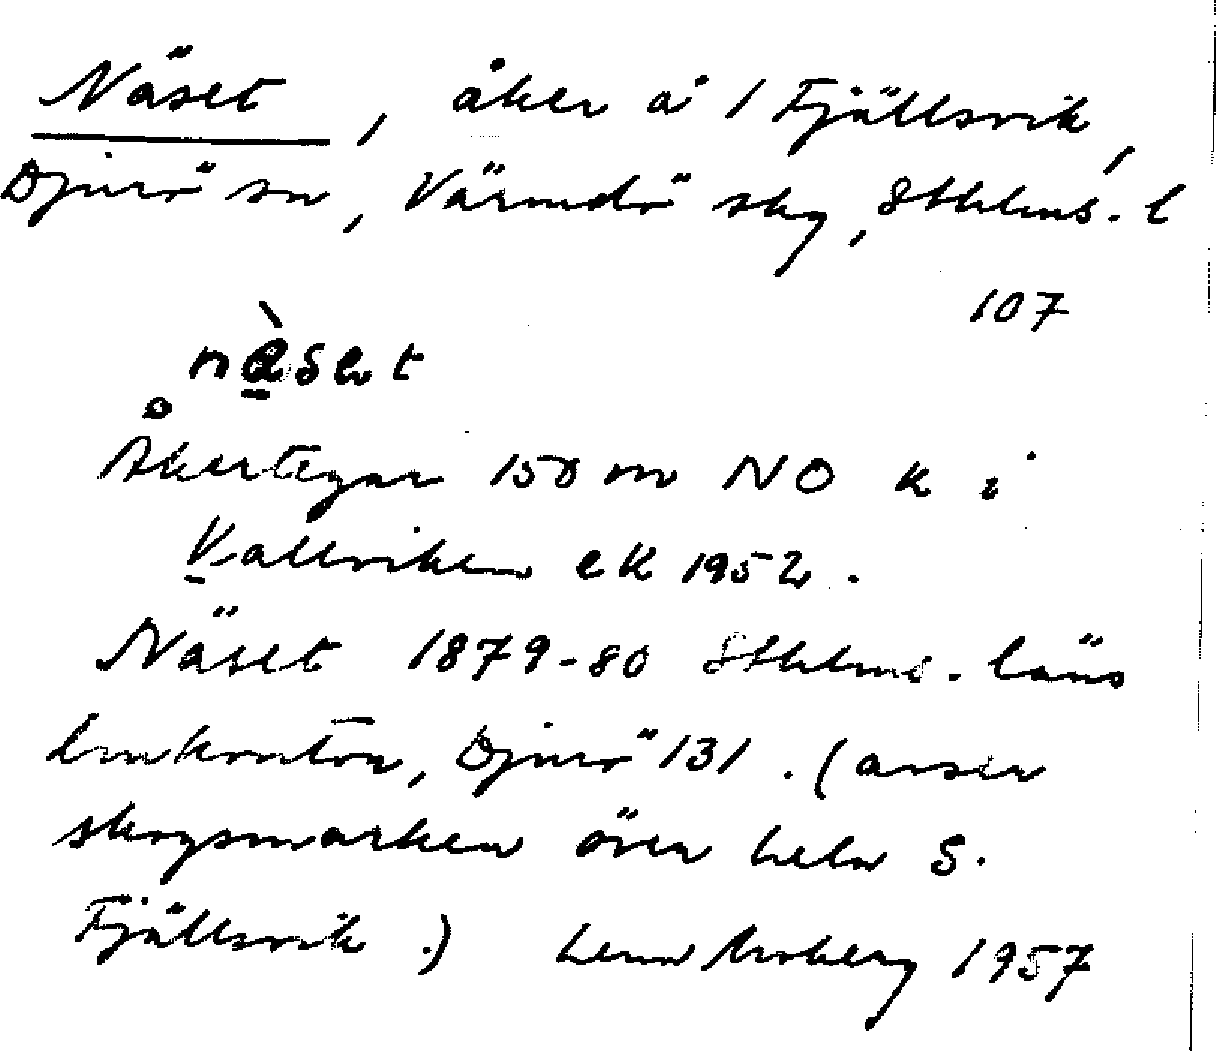 Näset, åker å 1 Fjällsvik,
Djurö sn, Värmdö skg, Sthlms. l
107
nä̀set
Åkertegar 150 m NO k i
Vallviken ek 1952.
Näset 1879-80 Sthlms. läns
lmkontor, Djurö 131. (avser
skogsmarken över hela S.
Fjällsvik.) Lena Moberg 1957